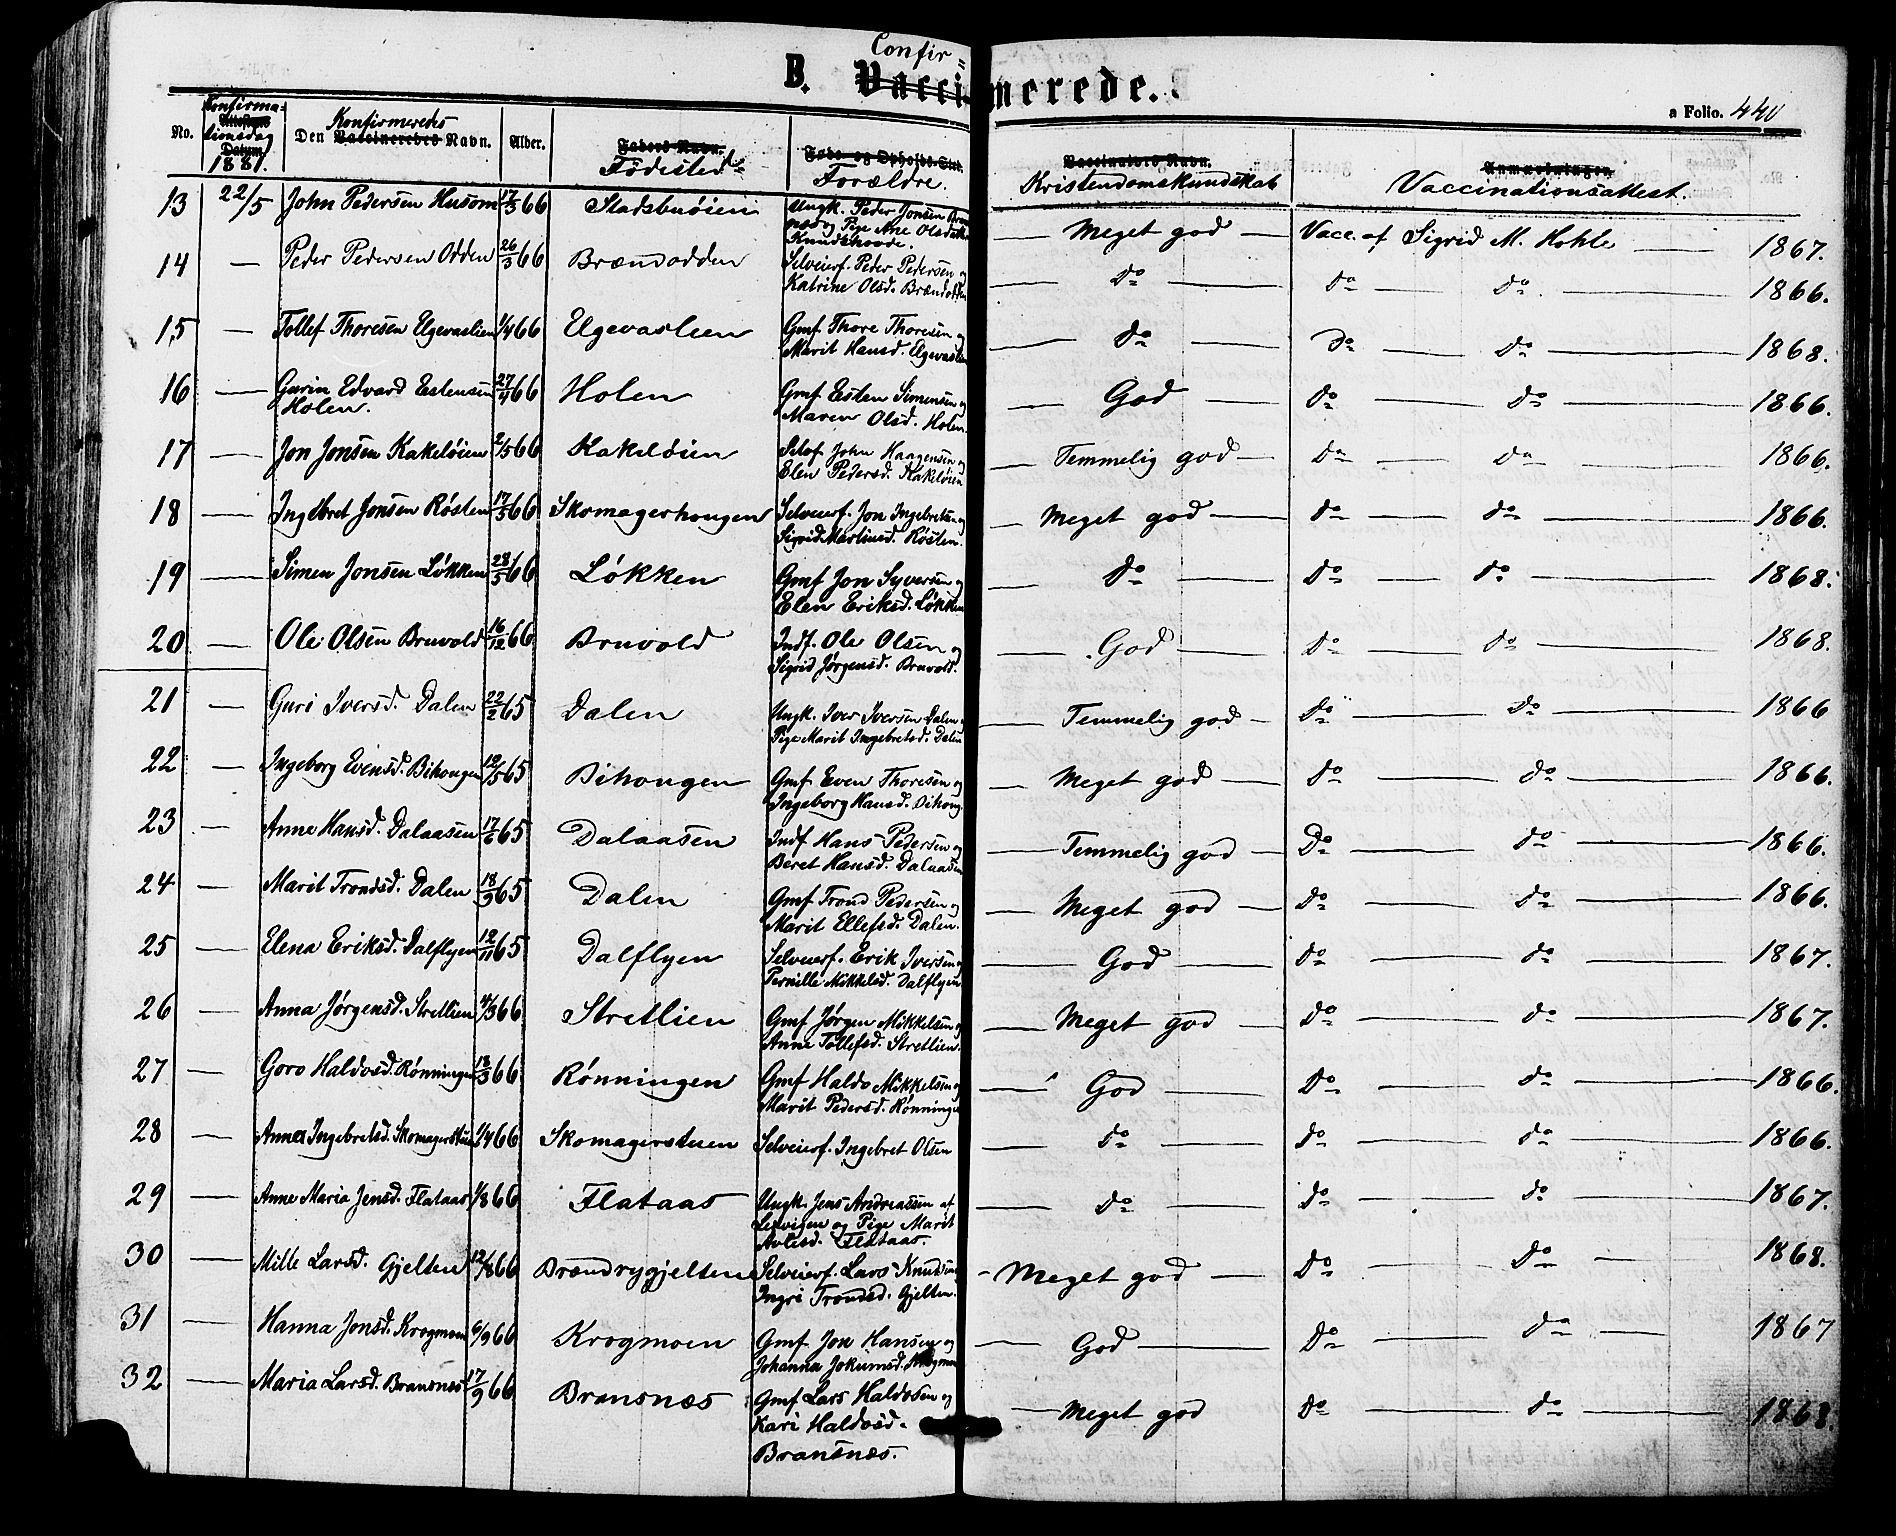 Confir=
B. Vaccinerede.
a Folio. 440
No. Konfirma=tionsdag 1881. Den Konfirmeredes Navn. Alder. Fødested Forældre. Kristendomskundskab Vaccinationsattest.
Attestens Datum. Vaccineredes Faders Navn. Føde- og Opholds-Sted. Vaccinators Navn. Anmærkninger.
13 22/5 John Pedersen Husom 17/3 66 Stadsbuøien Ungk. Peder Jonsen — Meget god — Vacc. af Sigrid M. Kohle — 1867.
og Pige Ane Olsdatter
Knudshoode.
14 — Peder Pedersen Odden 26/3 66 Brænodden Selveierf. Peder Pedersen og — do — do — do — 1866.
Katrine Olsd. Brænodden
15 — Tollef Thoresen Elgevaslien 1/4 66 Elgevaslien Gmf. Thore Thoresen og — do — do — do — 1868.
Marit Hansd. Elgevaslien
16 — Gurin Edvard Estensen 27/4 66 Holen Gmf Esten Simensen og — God — do — do — 1866.
Holen. Maren Olsd. Holen.
17 — Jon Jonsen Kakeløien 2/5 66 Kakeløien John Haagensen og — Temmelig god — do — do — 1866.
Elen Pedersd. Kakeløien
18 — Ingebret Jonsen Røsten 17/5 66 Skomagerhougen Selveierf. Jon Ingebretsen og — Meget god — do — do — 1866.
Sigrid Martinsd. Røsten.
19 — Simen Jonsen Løkken 28/5 66 Løkken Gmf Jon Syversen og — do — do — do — 1868.
Elen Eriksd. Løkken
20 — Ole Olsen Bruvold 16/12 66 Bruvold Indf. Ole Olsen og — God — do — do — 1868.
Sigrid Jørgensd. Bruvold.
21 — Guri Iversd. Dalen 22/2 65 Dalen Ungk. Iver Iversen Dalen — Temmelig god — do — do — 1866
Pige Marit Ingebretsd. Dalen
22 — Ingeborg Evensd. Bihougen 12/5 65 Bihougen Gmf Even Thoresen og — Meget god — do — do — 1866.
Ingeborg Hansd. Bihoug.
23 — Anne Hansd. Dalaasen 17/6 65 Dalaasen Indf Hans Pedersen og — Temmelig god — Do — do — 1866.
Beret Hansd. Dalaasen
24 — Marit Trondsd. Dalen 18/9 65 Dalen Gmf Trond Pedersen og — Meget god — do — do — 1866.
Marit Ellefsd. Dalen.
25 — Elena Eriksd. Dalflyen 12/11 65 Dalflyen Selveierf. Erik Iversen og — God — do — do — 1867.
Pernille Mikkelsd. Dalflyen
26 — Anna Jørgensd. Stretlien 4/3 66 Stretlien Gmf Jørgen Mikkelsen og — Meget god — do — do — 1867.
Anne Tollefsd. Stretlien.
27 — Goro Haldosd. Rønningen 13/3 66 Rønningen Gmf Haldo Mikkelsen og — God — do — do — 1866.
Marit Pedersd. Rønningen
28 — Anne Ingebretsd. Skomagerstuen 1/4 66 Skomagerstuen Selveierf. Ingebret Olsen — do — do — do — 1866.
29 — Anne Maria Jensd. Flataas 1/8 66 Flataas Ungk. Jens Andreassen af — do — do — do — 1867.
og Pige Marit
Flataas.
30 — Mille Larsd. Gjelten 12/8 66 Brændrygjelten Selveierf. Lars Knudsen — Meget god — do — Do — 1868.
Ingri Trondsd. Gjelten.
31 — Hanna Jonsd. Krogmoen 6/9 66 Krogmoen Gmf. Jon Hansen og — God — Do — do — 1867
Johanna Jokumsd. Krogmoen
32 — Maria Larsd. Bransnes 17/9 66 Bransnæs Gmf Lars Haldosen og — Meget god — do — do — 1868.
Kari Haldosd.
Bransnæs.